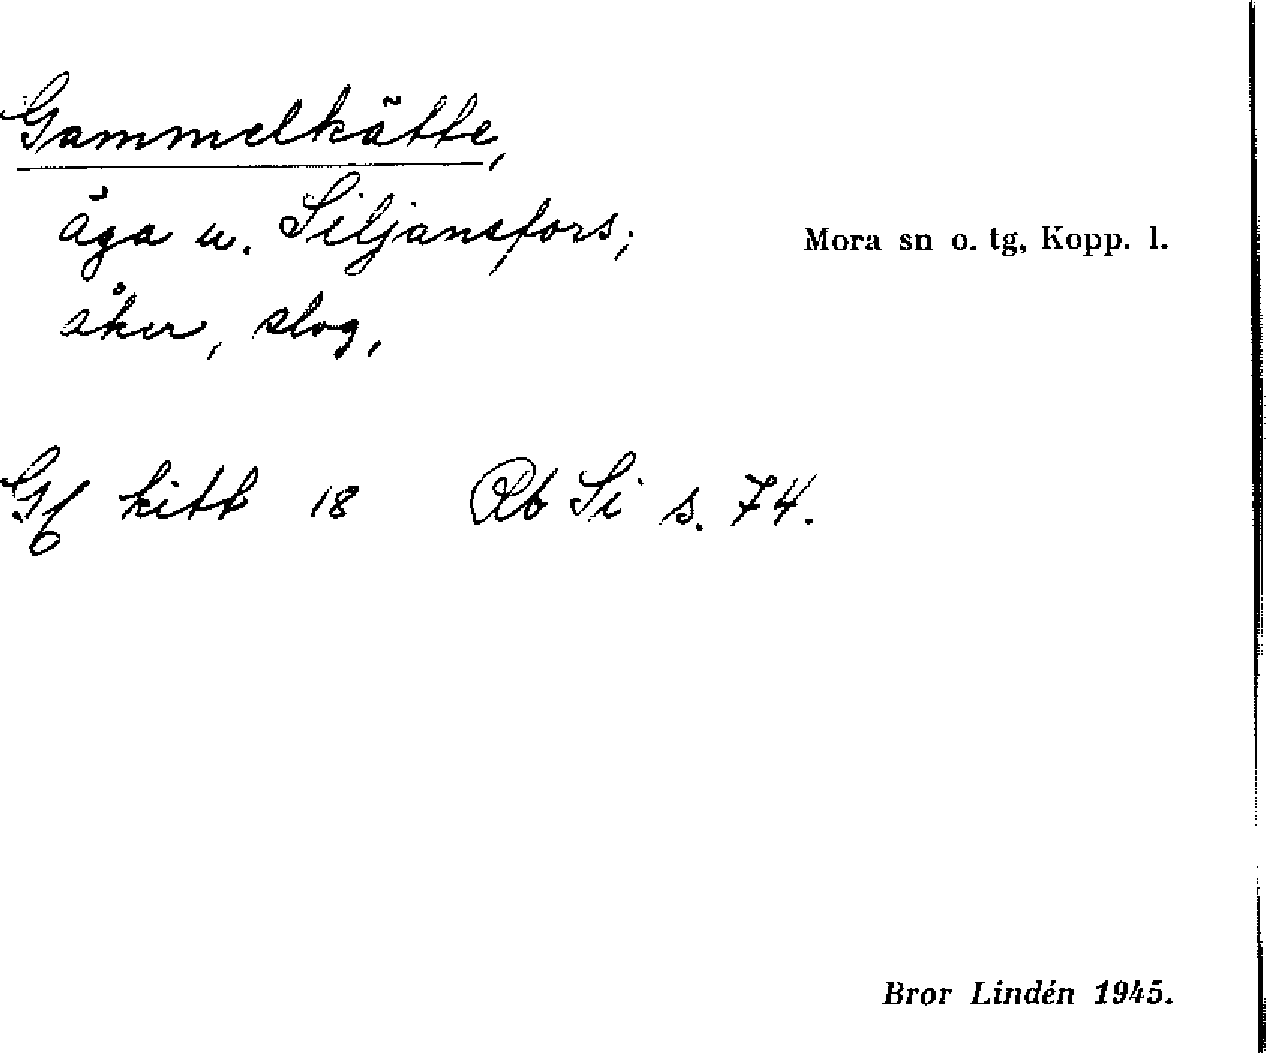 Gammelkätte,
äga u. Siljansfors;
åker, slog,
Mora sn o. tg, Kopp. l.
Gf kitt 18 Rb Si s. 74.
Bror Lindén 1945.